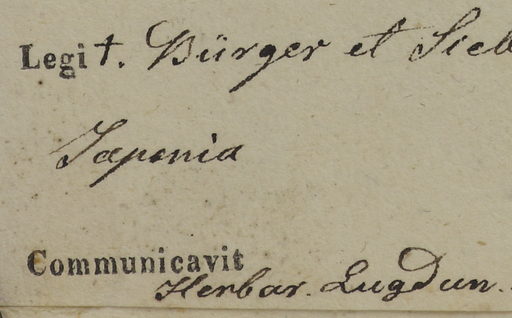 Legit. Bürger et Sieb
Japonia
Communicavit
Herbar. Lugdun.